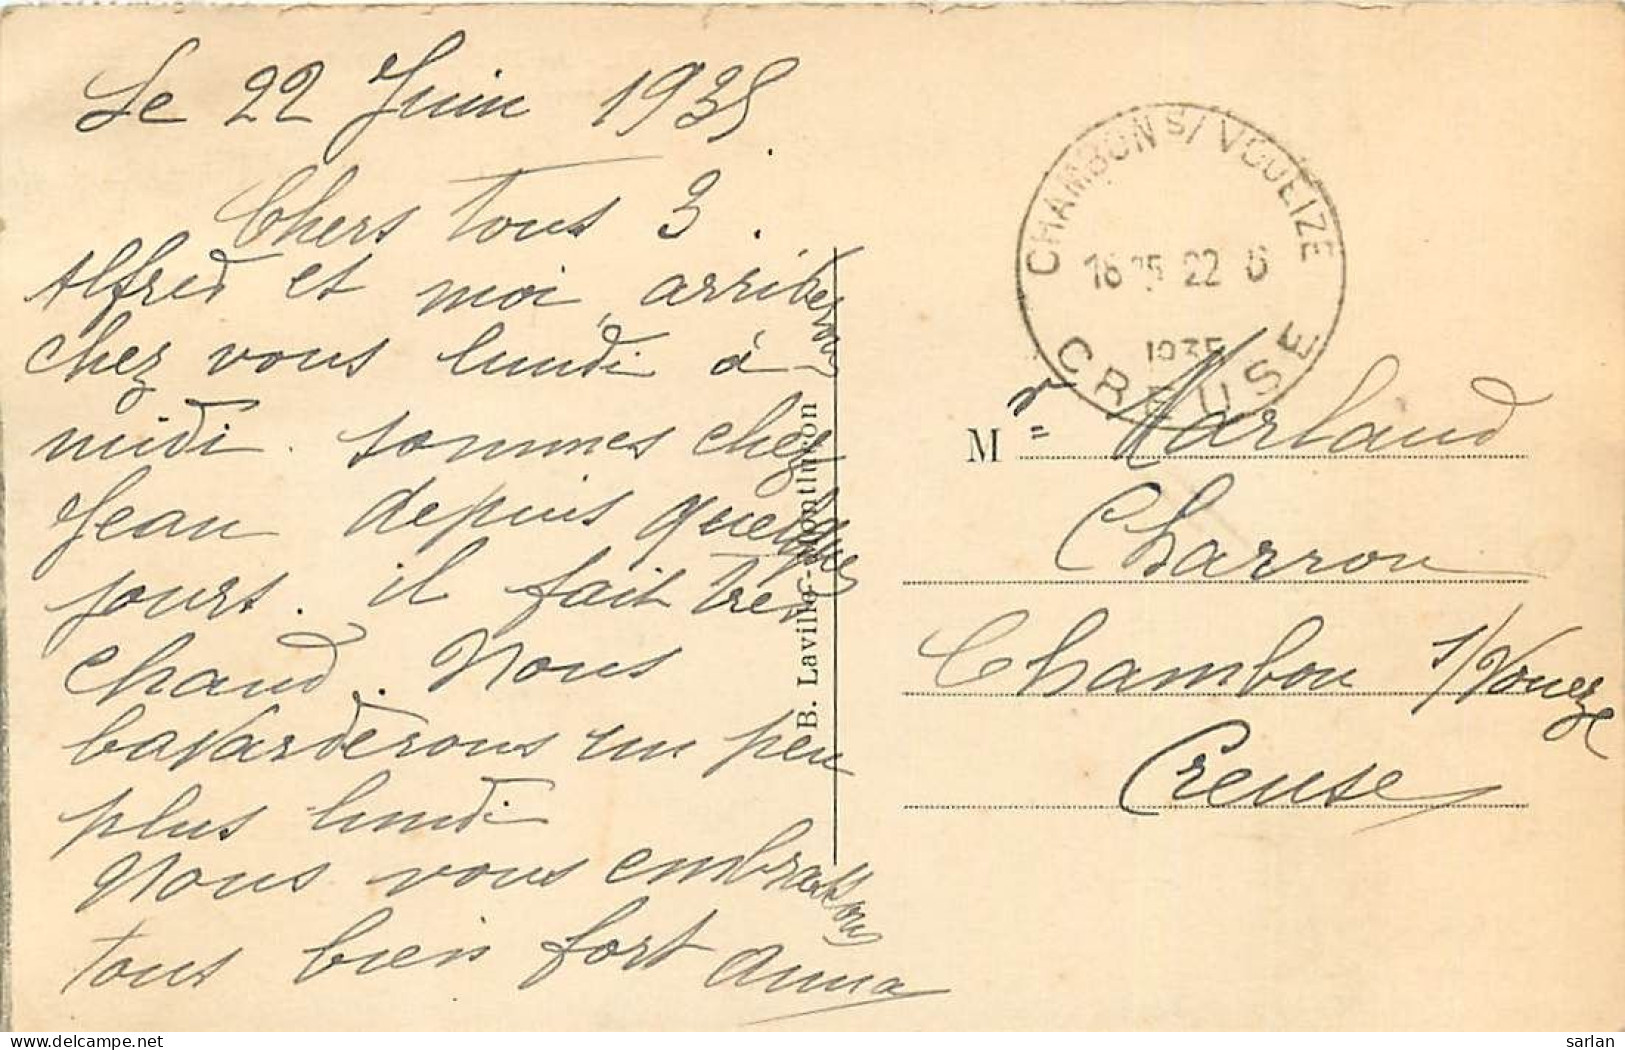 Le 22 Juin 1935
Chers tous 3.
Alfred et moi arriverons
chez vous lundi à
midi. sommes chez
Jean depuis quelques
jours. il fait très
chaud. Nous
bavarderons un peu
plus lundi
Nous vous embrassons
tous bien fort Anna
B. Laville - Montluçon
CHAMBON S/ VOUEIZE
22 6
1935
CREUSE
Mr Marlaud
Charron
Chambon s/Voueze
Creuse
sarlan